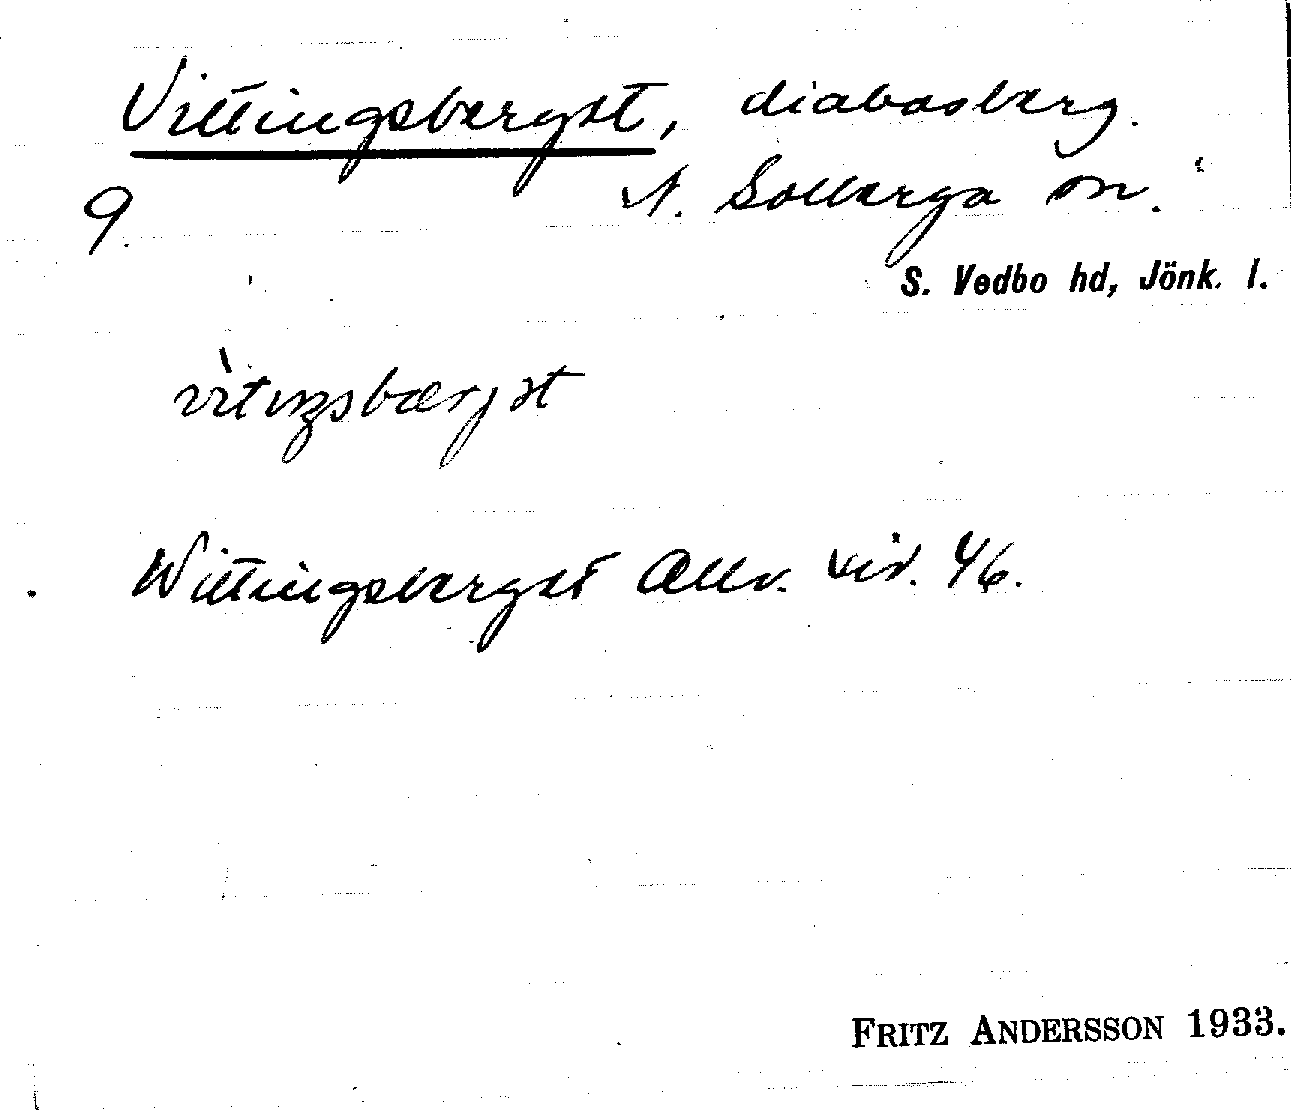 Vittingsberget, diabasberg.
9 N. Solberga sn.
S. Vedbo hd, Jönk. l.
Wittingsberget Allv. sid. 46.
FRITZ ANDERSSON 1933.